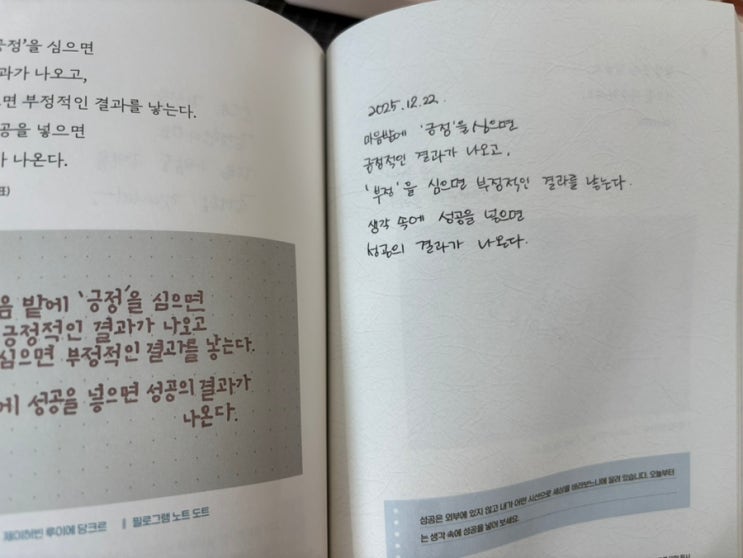 긍정’을 심으면
과가 나오고,
으면 부정적인 결과를 낳는다.
공을 넣으면
가 나온다.
음 밭에 ‘긍정’을 심으면
긍정적인 결과가 나오고
심으면 부정적인 결과를 낳는다.
에 성공을 넣으면 성공의 결과가
나온다.
제이허빈 루이에 덩크르 | 필로그램 노트 도트
2025.12.22.
마음밭에 ‘긍정’을 심으면
긍정적인 결과가 나오고,
‘부정’을 심으면 부정적인 결과를 낳는다.
생각 속에 성공을 넣으면
성공의 결과가 나온다.
성공은 외부에 있지 않고 내가 어떤 시선으로 세상을 바라보느냐에 달려 있습니다. 오늘부터
는 생각 속에 성공을 넣어 보세요.